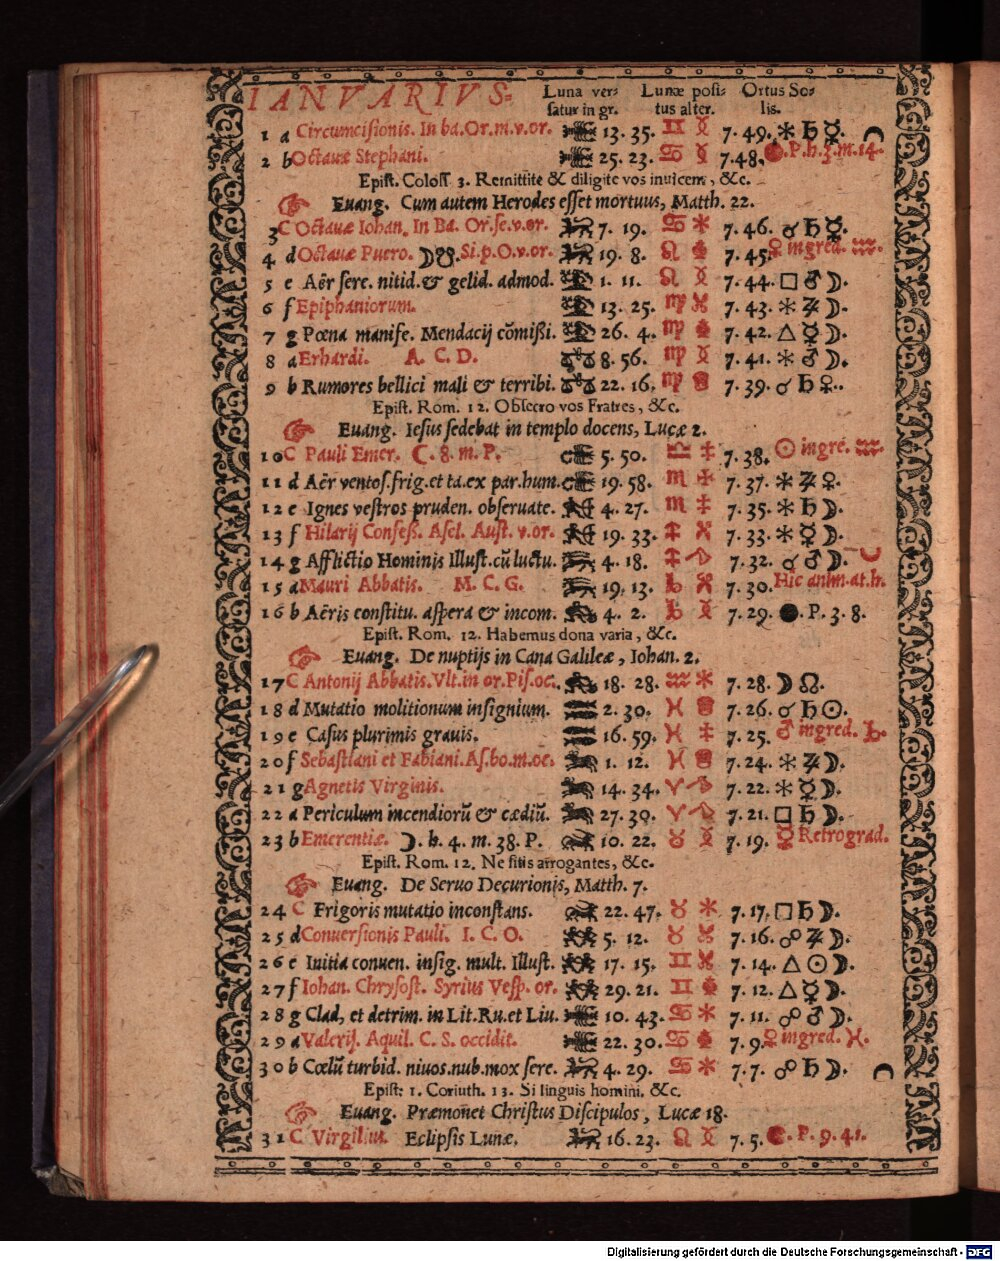 IANVARIVS. Luna ver- Lunæ posi- Ortus So-
satur in gr. tus alter. lis.
1 a Circumcisionis. In ba. Or. m. v. or. 13. 35. ♊ 7. 49. ⚹ ♄ ☿.
2 b Octauæ Stephani. 25. 23. ♋ 7. 48. P. h. 3. m. 14.
Epist. Coloss. 3. Remittite & diligite vos inuicem, &c.
Euang. Cum autem Herodes esset mortuus, Matth. 22.
3 C Octauæ Iohan. In Ba. Or. se. v. or. 7. 19. ♋ 7. 46. ☌ ♄ ☿.
4 d Octauæ Puero. ☽☋. Si. p. O. v. or. 19. 8. ♌ 7. 45. ♀ ingred. ♒.
5 e Aër fere. nitid. & gelid. admod. 1. 11. ♌ 7. 44. □ ♂ ☽.
6 f Epiphaniorum. 13. 25. ♍ 7. 43. ⚹ ♃ ☽.
7 g Pœna manife. Mendacij cōmißi. 26. 4. ♍ 7. 42. △ ☿ ☽.
8 a Erhardi. A. C. D. 8. 56. ♍ 7. 41. ⚹ ♂ ☽.
9 b Rumores bellici mali & terribi. 22. 16. ♍ 7. 39. ☌ ♄ ♀.
Epist. Rom. 12. Obsecro vos Fratres, &c.
Euang. Iesus sedebat in templo docens, Lucæ 2.
10 C Pauli Emer. ☾. 8. m. P. 5. 50. ♎ 7. 38. ☉ ingre. ♒
11 d Aër ventos. frig. et ta. ex par. hum. 19. 58. ♏ 7. 37. ⚹ ♃ ♀.
12 e Ignes vestros pruden. obseruate. 4. 27. ♏ 7. 35. ⚹ ♄ ☽.
13 f Hilarij Confess. Asel. Aust. v. or. 19. 33. ♐ 7. 33. ⚹ ☿ ☽.
14 g Afflictio Hominis Illust. cū luctu. 4. 18. ♐ 7. 32. ☌ ♂ ☽.
15 a Mauri Abbatis. M. C. G. 19. 13. ♑ 7. 30. Hic anim. at. h.
16 b Aëris constitu. aspera & incom. 4. 2. ♑ 7. 29. ●. P. 3. 8.
Epist. Rom. 12. Habemus dona varia, &c.
Euang. De nuptijs in Cana Galileæ, Iohan. 2.
17 C Antonij Abbatis. Vlt. in or. Pis. oc. 18. 28. ♒ 7. 28. ☽ ☊.
18 d Mutatio molitionum insignium. 2. 30. ♓ 7. 26. ☌ ♄ ☉.
19 e Casus plurimis grauis. 16. 59. ♓ 7. 25. ♂ ingred. ♑.
20 f Sebastiani et Fabiani. As. bo. m. oc. 1. 12. ♓ 7. 24. ⚹ ♃ ☽.
21 g Agnetis Virginis. 14. 34. ♈ 7. 22. ⚹ ☿ ☽.
22 a Periculum incendiorū & cædiū. 27. 30. ♈ 7. 21. □ ♄ ☽.
23 b Emerentiæ. ☽. h. 4. m. 38. P. 10. 22. ♉ 7. 19. ☿ Retrograd.
Epist. Rom. 12. Ne sitis arrogantes, &c.
Euang. De Seruo Decurionis, Matth. 7.
24 C Frigoris mutatio inconstans. 22. 47. ♉ 7. 17. □ ♄ ☽.
25 d Conuersionis Pauli. I. C. O. 5. 12. ♉ 7. 16. ☍ ♃ ☽.
26 e Initia conuen. insig. mult. Illust. 17. 15. ♊ 7. 14. △ ☉ ☽.
27 f Iohan. Chrysost. Syrius Vesp. or. 29. 21. ♊ 7. 12. △ ☿ ☽.
28 g Clad, et detrim. in Lit. Ru. et Liu. 10. 43. ♋ 7. 11. ☍ ♂ ☽.
29 a Valerij. Aquil. C. S. occidit. 22. 30. ♋ 7. 9. ♀ ingred. ♓.
30 b Cœlū turbid. niuos. nub. mox fere. 4. 29. ♋ 7. 7. ☍ ♄ ☽.
Epist: 1. Corinth. 13. Si linguis homini. &c.
Euang. Præmonet Christus Discipulos, Lucæ 18.
31 C Virgilius. Eclipsis Lunæ. 16. 23. ♌ 7. 5. P. 9. 41.
Digitalisierung gefördert durch die Deutsche Forschungsgemeinschaft - DFG